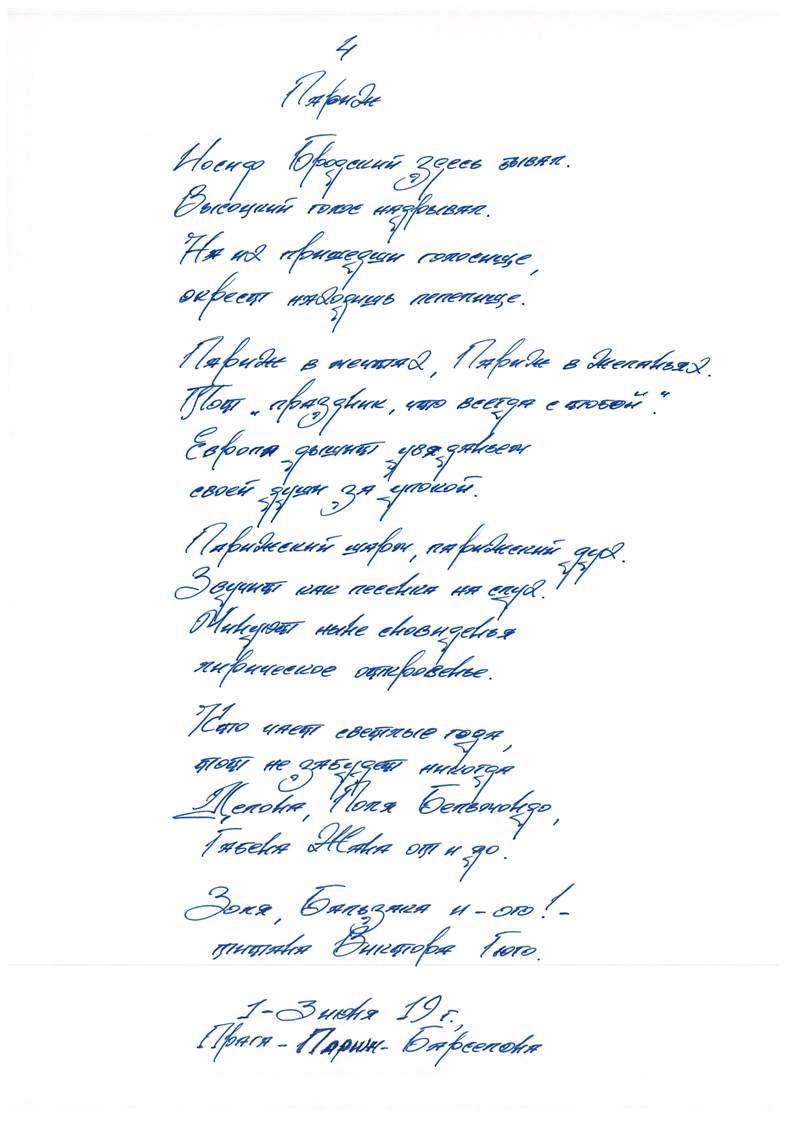 4
Париж
Иосиф Бродский здесь бывал.
Высоцкий голос надрывал.
На их пришедши голосище,
окрест находишь пепелище.
Париж в мечтах, Париж в желаньях.
Тот „праздник, что всегда с тобой“.
Европа дышит увяданьем
своей души за упокой.
Парижский шарм, парижский дух.
Звучит как песенка на слух.
Минуют ныне сновиденья
лирическое откровенье.
Кто чает светлые года,
тот не забудет никогда
Делона, Поля Бельмондо,
Габена Жана от и до.
Золя, Бальзака и - ого! -
титана Виктора Гюго.
1-3 июня 19 г.,
Прага - Париж - Барселона